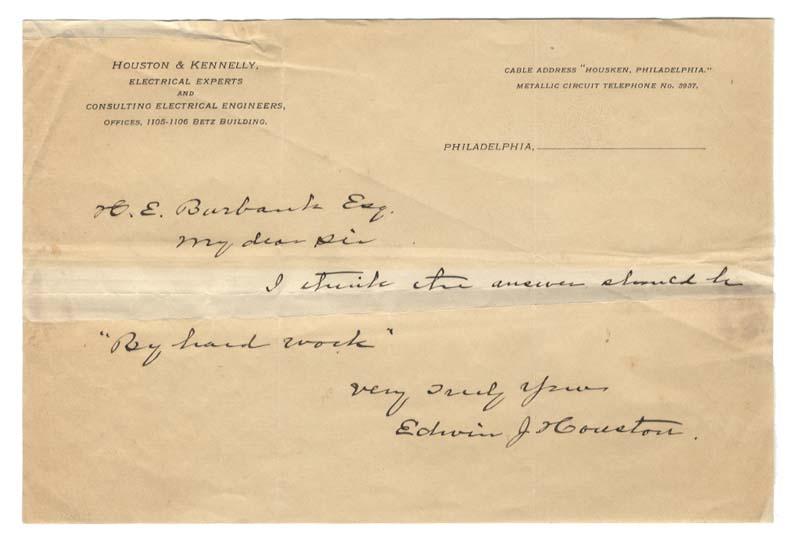 HOUSTON & KENNELLY,
ELECTRICAL EXPERTS
AND
CONSULTING ELECTRICAL ENGINEERS,
OFFICES, 1105-1106 BETZ BUILDING.
CABLE ADDRESS "HOUSKEN, PHILADELPHIA."
METALLIC CIRCUIT TELEPHONE No. 3937.
PHILADELPHIA,
H. E. Burbank Esq.
My dear Sir
I think the answer should be
"By hard work"
Very Truly Yours
Edwin J Houston.